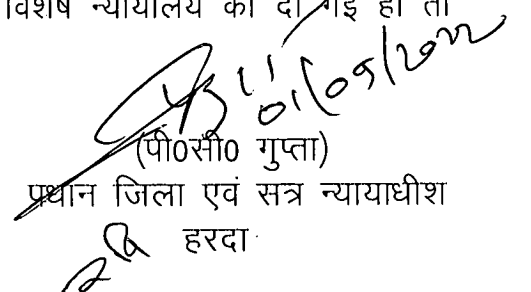 विशेष न्यायालय को दी गई हो तो
01/09/2022
(पी0सी0 गुप्ता)
प्रधान जिला एवं सत्र न्यायाधीश
हरदा